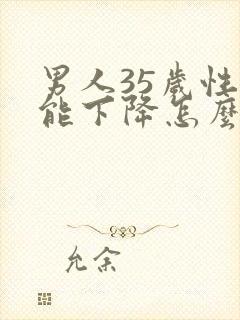 男人35歲性
能下降怎麼
允余